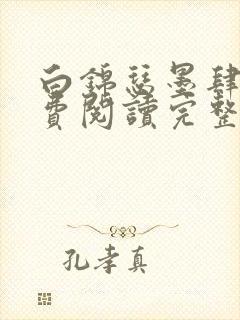 白錦瑟墨肆
費閱讀完整
孔孝真